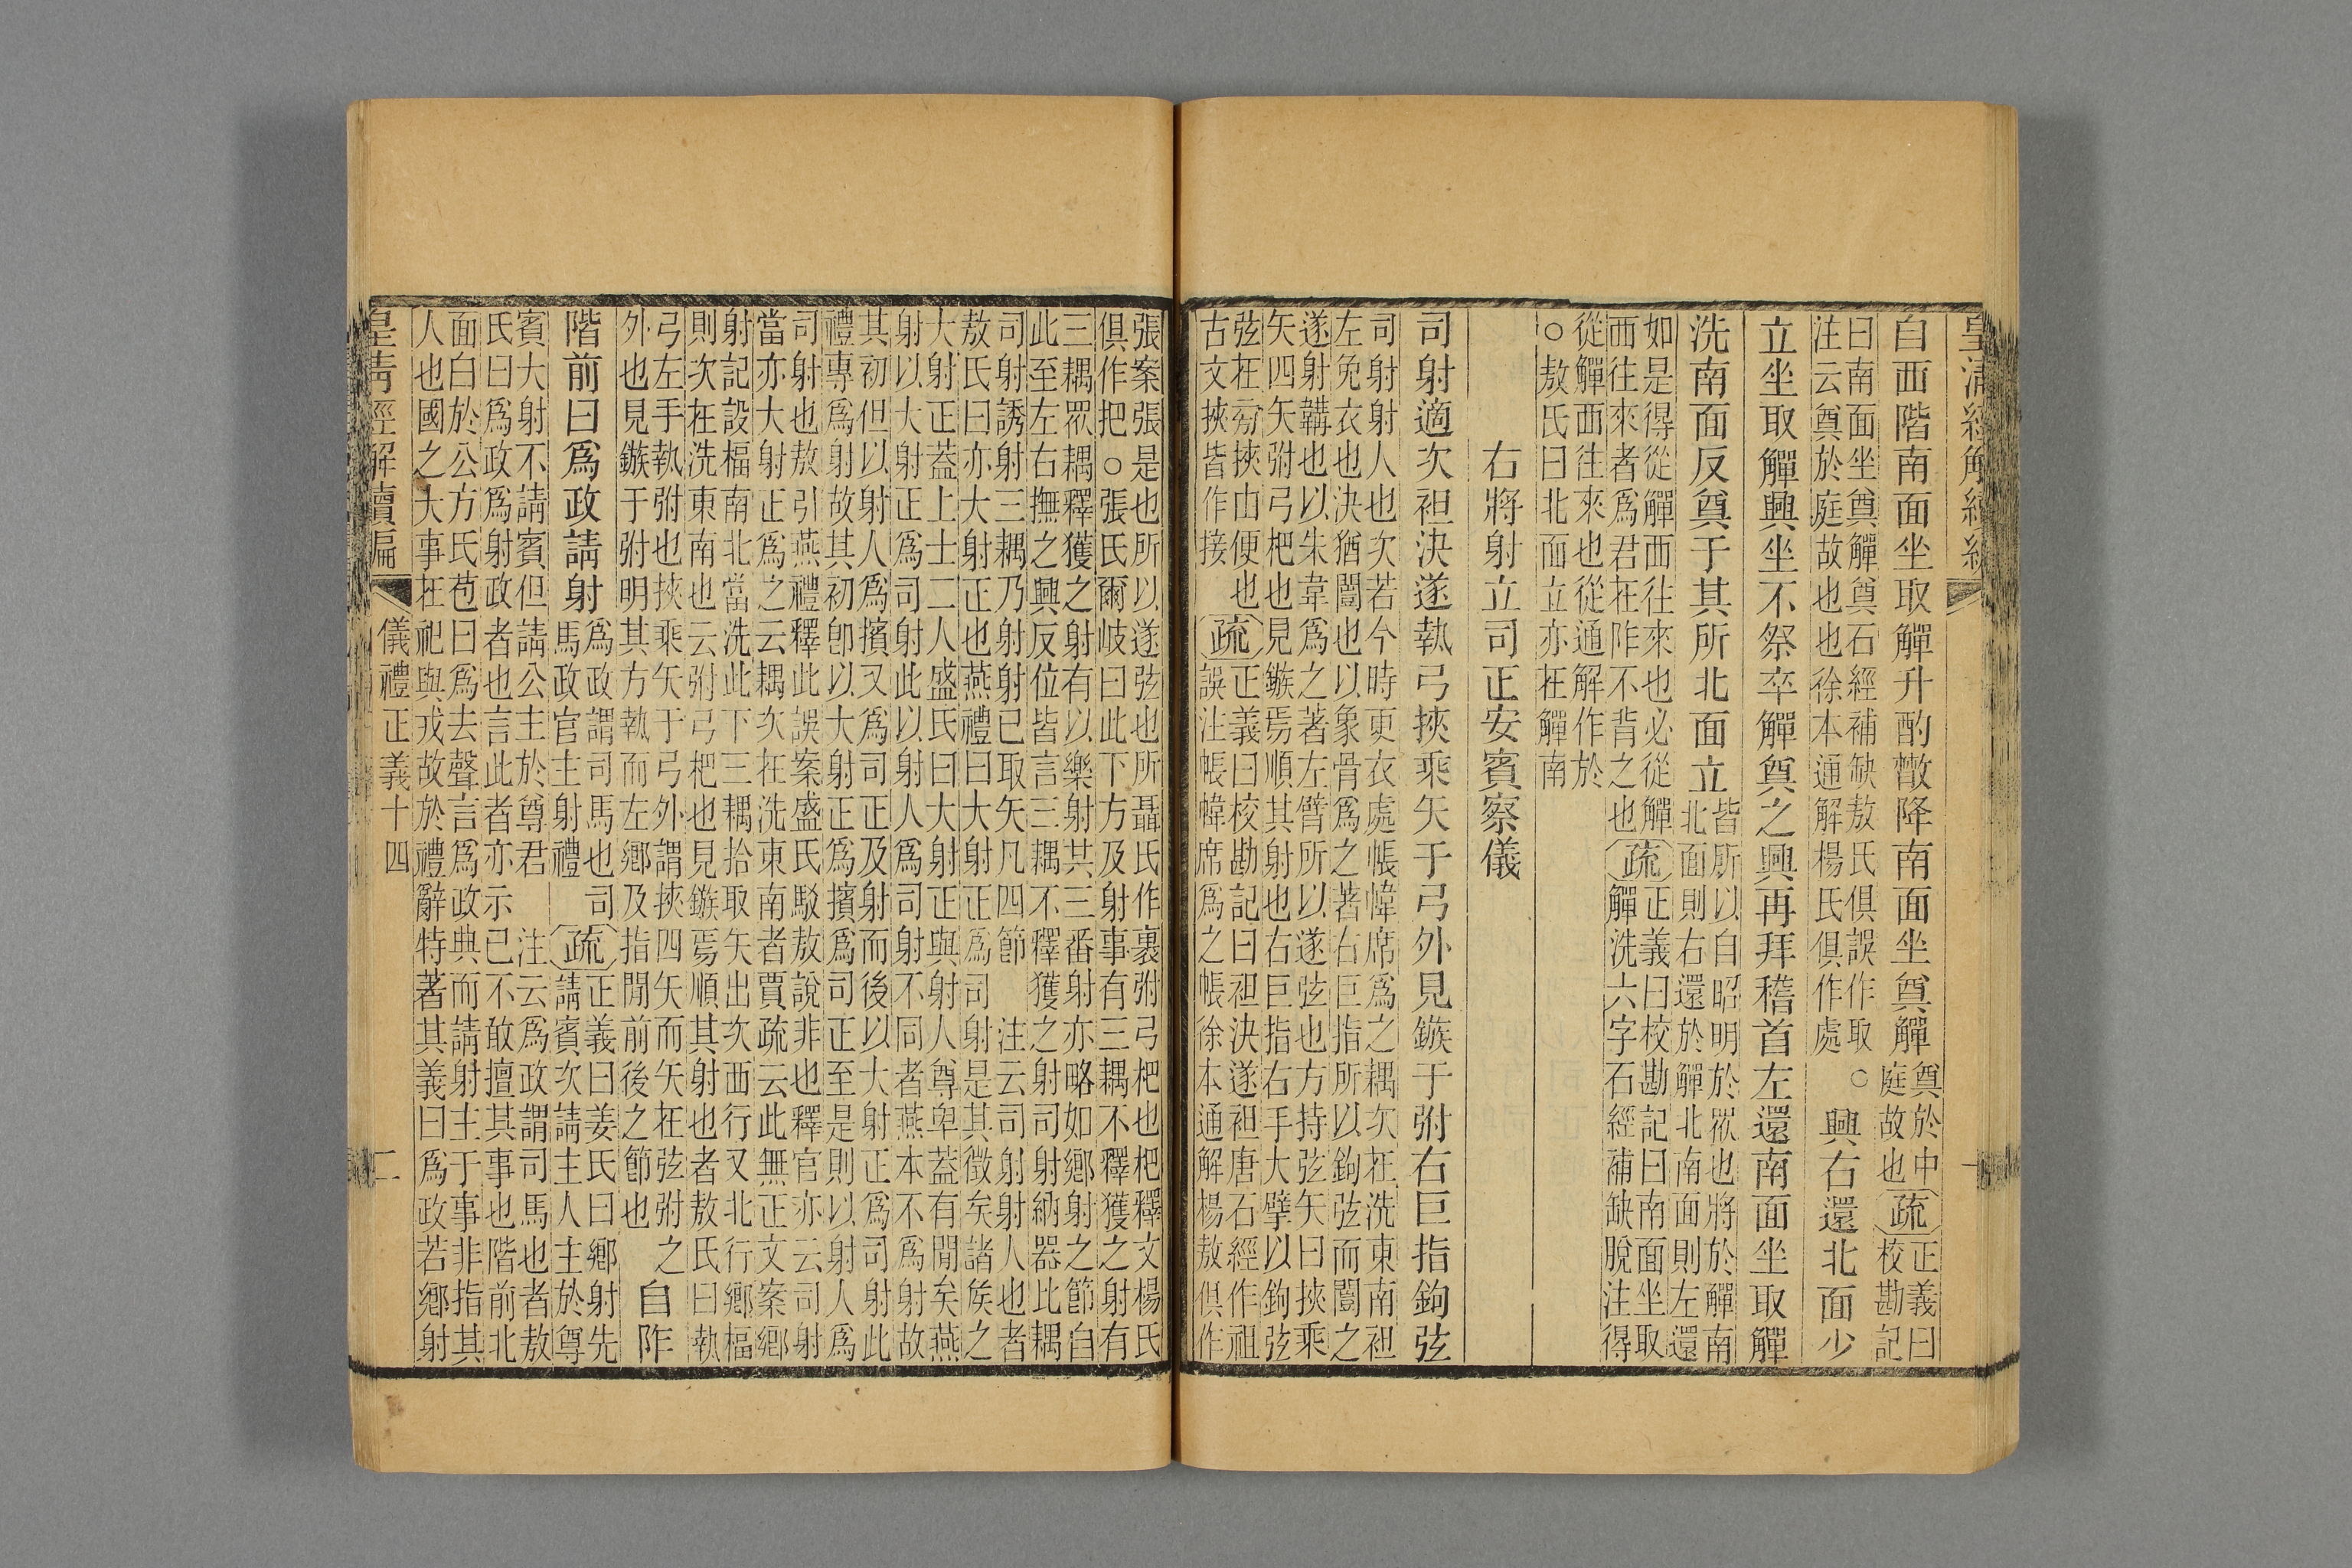 皇清經解續編
自西階南面坐取觶升酌散降南面坐奠觶
奠於中
庭故也
疏
正義曰
校勘記
曰南面坐奠觶奠石經補缺敖氏俱誤作取○
注云奠於庭故也也徐本通解楊氏俱作處
興右還北面少
立坐取觶興坐不祭卒觶奠之興再拜稽首左還南面坐取觶
洗南面反奠于其所北面立
皆所以自昭明於眾也將於觶南
北面則右還於觶北南面則左還
如是得從觶西往來也必從觶
西往來者爲君在阼不背之也
疏
正義曰校勘記曰南面坐取
觶洗六字石經補缺脫注得
從觶西往來也從通解作於
○敖氏曰北面立亦在觶南
右將射立司正安賓察儀
司射適次袒決遂執弓挾乘矢于弓外見鏃于弣右巨指鉤弦
司射射人也次若今時更衣處帳幃席爲之耦次在洗東南袒
左免衣也決猶闓也以象骨爲之著右巨指所以鉤弦而闓之
遂射韝也以朱韋爲之著左臂所以遂弦也方持弦矢曰挾乘
矢四矢弣弓杷也見鏃焉順其射也右巨指右手大擘以鉤弦
弦在旁挾由便也
古文挾皆作接
疏
正義曰校勘記曰袒決遂袒唐石經作祖
誤注帳幃席爲之帳徐本通解楊敖俱作
張案張是也所以遂弦也所聶氏作裹弣弓杷也杷釋文楊氏
俱作把○張氏爾岐曰此下方及射事有三耦不釋獲之射有
三耦眾耦釋獲之射有以樂射其三番射亦略如鄉射之節自
此至左右撫之興反位皆言三耦不釋獲之射司射納器比耦
司射誘射三耦乃射射已取矢凡四節 注云司射射人也者
敖氏曰亦大射正也燕禮曰大射正爲司射是其徵矣諸侯之
大射正蓋上士二人盛氏曰大射正與射人尊卑蓋有閒矣燕
射以大射正爲司射此以射人爲司射不同者燕本不爲射故
其初但以射人爲擯又爲司正及射而後以大射正爲司射此
禮專爲射故其初卽以大射正爲擯爲司正至是則以射人爲
司射也敖引燕禮釋此誤案盛氏駁敖說非也釋官亦云司射
當亦大射正爲之云耦次在洗東南者賈疏云此無正文案鄉
射記設楅南北當洗此下三耦拾取矢出次西行又北行鄉楅
則次在洗東南也云弣弓杷也見鏃焉順其射也者敖氏曰執
弓左手執弣也挾乘矢于弓外謂挾四矢而矢在弦弣之
外也見鏃于弣明其方執而左鄉及指閒前後之節也
自阼
階前曰爲政請射
爲政謂司馬也司
馬政官主射禮
疏
正義曰姜氏曰鄉射先
請賓次請主人主於尊
賓大射不請賓但請公主於尊君 注云爲政謂司馬也者敖
氏曰爲政爲射政者也言此者亦示已不敢擅其事也階前北
面白於公方氏苞曰爲去聲言爲政典而請射主于事非指其
人也國之大事在祀與戎故於禮辭特著其義曰爲政若鄉射
皇清經解續編
儀禮正義十四
二